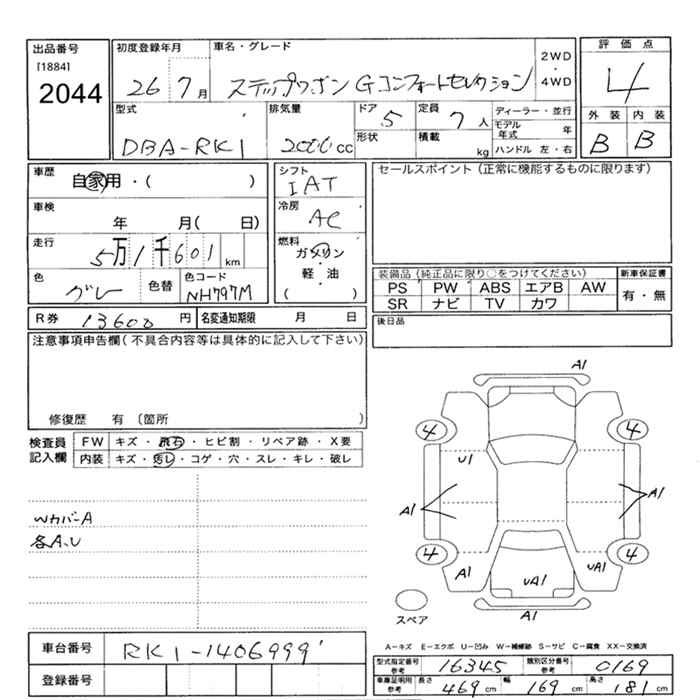 出品番号
[1884]
2044
初度登録年月
26 7月
車名・グレード
ステップワゴン Gコンフォートセレクション
2WD
・
4WD
評価点
4
外装 内装
B B
型式
DBA-RK1
排気量
2000cc
ドア
5
形状
定員
7人
積載
kg
ディーラー・並行
モデル年式 年
ハンドル 左・右
車歴
自家用・( )
車検
年 月( 日)
走行
5万1千601km
色
グレー
色替
色コード
NH797M
シフト
IAT
冷房
AC
燃料
ガソリン
・
軽油
( )
セールスポイント (正常に機能するものに限ります)
装備品 (純正品に限り○をつけてください)
PS PW ABS エアB AW
SR ナビ TV カワ
新車保証書
有・無
R券 13600 円
名変通知期限 月 日
後日品
注意事項申告欄 (不具合内容等は具体的に記入して下さい)
修復歴 有 (箇所 )
検査員記入欄
FW キズ・飛石・ヒビ割・リペア跡・X要
内装 キズ・汚レ・コゲ・穴・スレ・キレ・破レ
Wカバー A
各A.U
A1
4 4
U1
A1 A1
4 4
A1 UA1 UA1
A1
スペア
A-キズ E-エクボ U-凹み W-補修跡 S-サビ C-腐食 XX-交換済
車台番号
RK1-1406999
登録番号
型式指定番号参考
16345
類別区分番号参考
0169
車庫証明用参考
長さ 469cm
幅 169cm
高さ 181cm